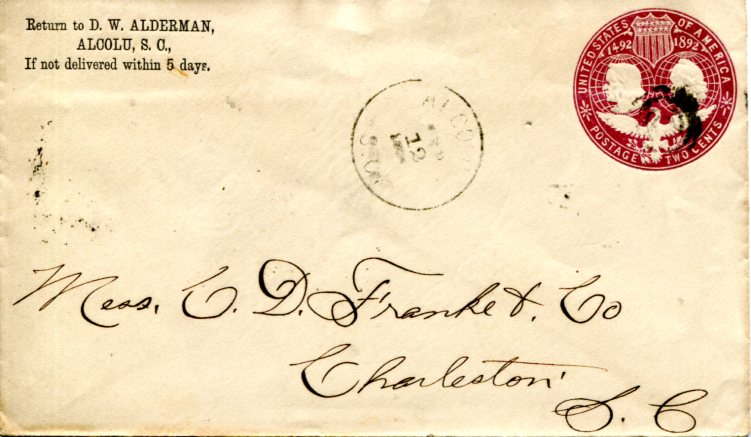 Return to D. W. ALDERMAN,
ALCOLU, S. C.,
If not delivered within 5 days.
UNITED STATES OF AMERICA
1492 1892
POSTAGE TWO CENTS
ALCO
12
S.C.
Mess. C. D. Franke &. Co
Charleston
S. C